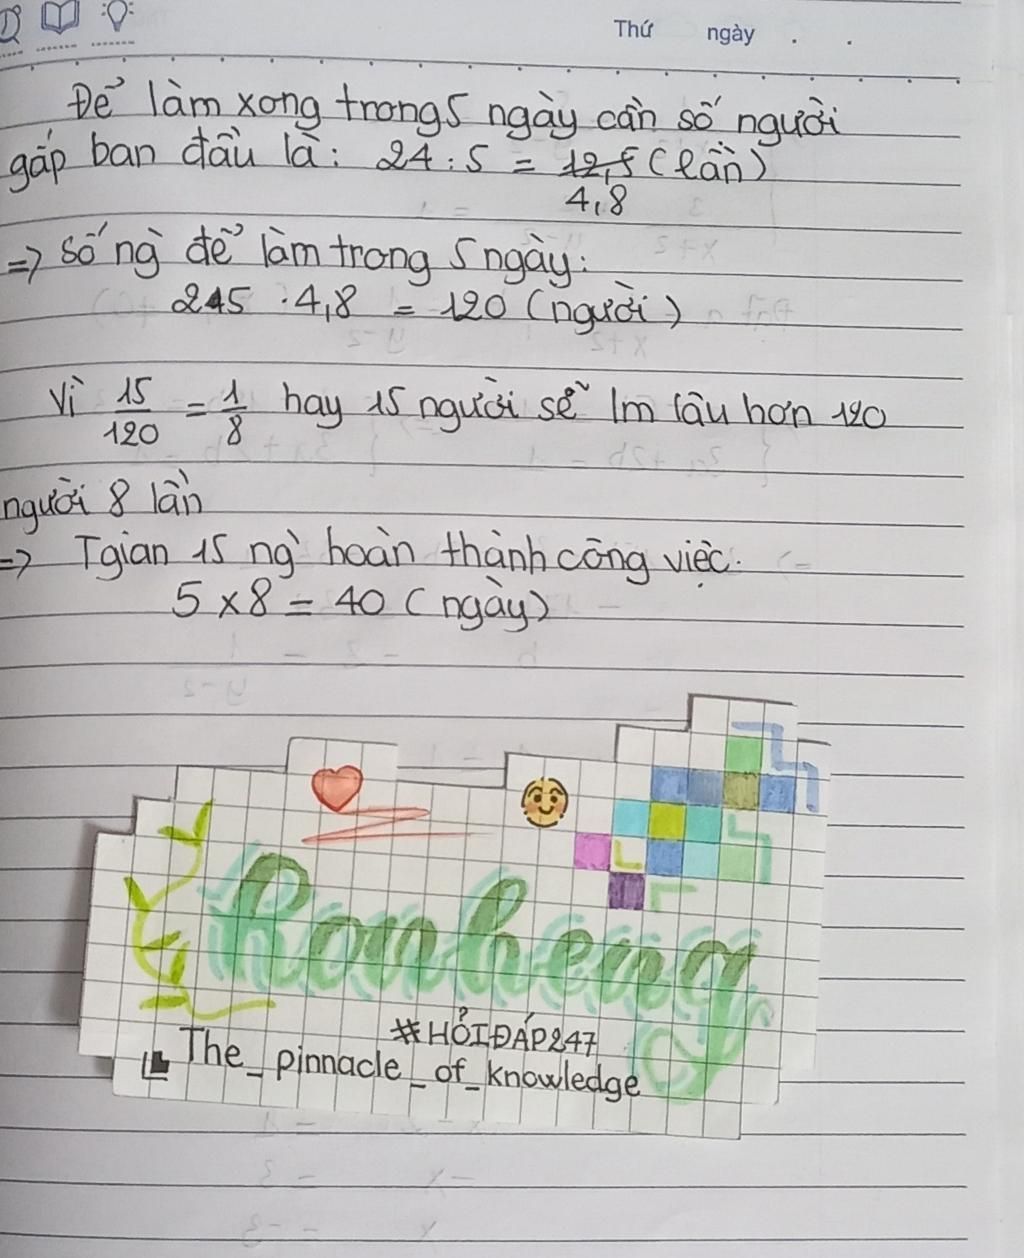 Thứ ngày . .
Để làm xong trong 5 ngày cần số người
gấp ban đầu là: 24 : 5 = 12,5 (lần)
4,8
=> Số ng để làm trong 5 ngày:
245 . 4,8 = 120 (người)
Vì 15/120 = 1/8 hay 15 người sẽ lm lâu hơn 120
người 8 lần
=> Tgian 15 ng hoàn thành công việc.
5 x 8 = 40 (ngày)
Ronheng
#HỎIĐÁP247
The_pinnacle_of_knowledge